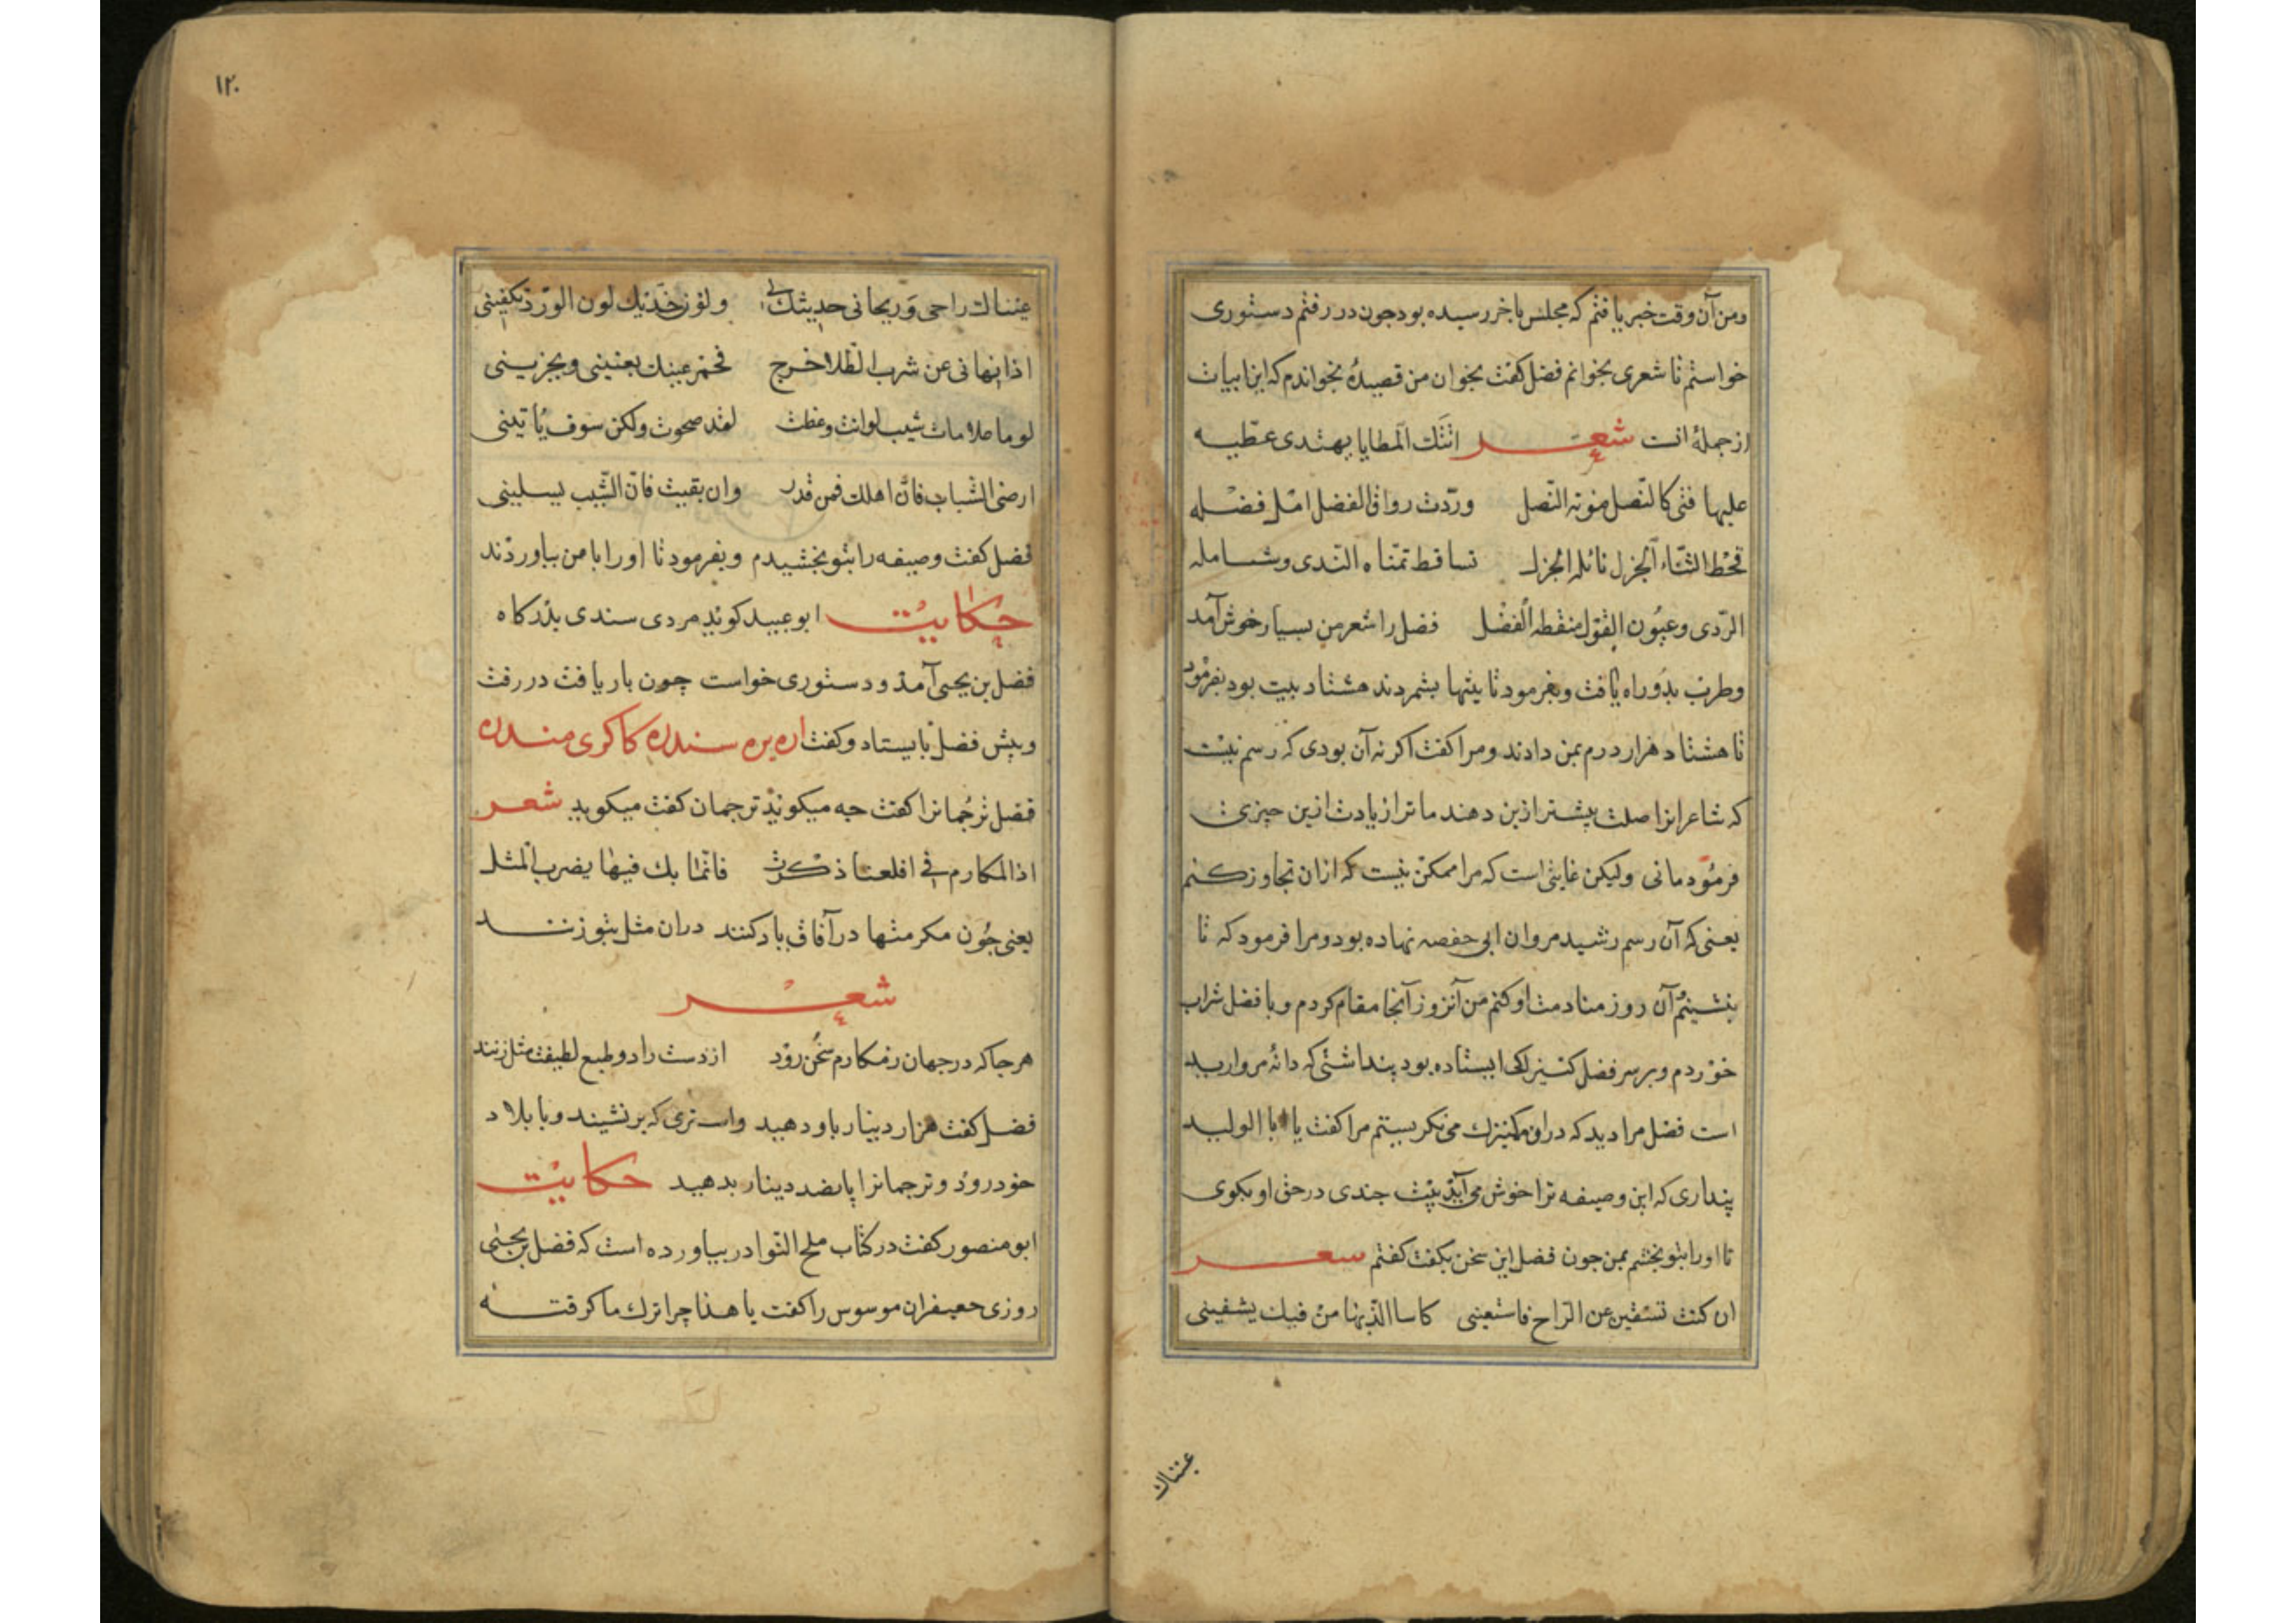 ومن آن وقت خبر یافتم که مجلس باخر رسیده بود جون در رفتم دستوری
خواستم تا شعری بخوانم فضل کفت بخوان من قصیدهٔ بخواندم که این ابیات
ازجملهٔ انست شعر اتتك المطایا یهتدی عطیه
علیها فتی کالنصل مونه النصل وردت رواق الفضل امل فضله
فحط الثناء الجزل نائله الجزل تساقط تمناه الندی وشمامله
الردی وعیون القول منقطه الفضل فضل را شعر من بسیار خوش آمد
وطرب بدو راه یافت وبفرمود تا بیتها بشمردند هشتاد بیت بود بفرمود
تا هشتاد هزار درم بمن دادند ومرا کفت اکر نه آن بودی که رسم نیست
که شاعرانرا صلت بیشتر ازین دهند ما ترا زیادت ازین چیزی
فرمودمانی ولیکن غایتی است که مرا ممکن نیست که ازان تجاوز کنم
یعنی که آن رسم رشید مروان ابی حفصه نهاده بود ومرا فرمود که تا
بنشینم آن روز منادمت او کنم من آنروز آنجا مقام کردم وبا فضل شراب
خوردم وبر سر فضل کنیزکی ایستاده بود پنداشتی که دانهٔ مروارید
است فضل مرا دید که دران کنیزك می نکریستم مرا کفت یا ابا الولید
پنداری که این وصیفه ترا خوش می آید بیت جندی در حق او بکوی
تا اورا بتو بخشم بمن جون فضل این سخن بکفت کفتم شعر
ان کنت تسقین عن الراح فاسقینی کاسا الذیها من فیك یشفینی
عیناك
۱۲۰
عیناك راحی وریحانی حدیثك لی ولون خدیك لون الورد یکفینی
اذا نهانی عن شرب الطلا خرج فخمر عینك یغنینی ویجزینی
لوما ملامات شیب لوانت وعظت لقد صحوت ولکن سوف یاتینی
ارضی الشباب فان اهلك فمن قدر وان بقیت فان الشیب یسلینی
فضل کفت وصیفه را بتو بخشیدم وبفرمود تا اورا با من بیاوردند
حکایت ابو عبید کوید مردی سندی بدرکاه
فضل بن یحیی آمد و دستوری خواست چون بار یافت در رفت
وپیش فضل بایستاد وکفت اره بره سندره کاکری مندره
فضل ترجمانرا کفت جه میکوید ترجمان کفت میکوید شعر
اذا المکارم فی افلعنا ذکرت فانما بك فیها یضرب المثل
یعنی جون مکرمتها در آفاق یاد کنند دران مثل بتو زنند
شعر
هرجا که در جهان ز مکارم سخن رود از دست راد و طبع لطیفت مثل زنند
فضل کفت هزار دینار باو دهید واستری که برنشیند وبا بلاد
خود رود وترجمانرا پانصد دینار بدهید حکایت
ابو منصور کفت در کتاب ملح النوادر بیاورده است که فضل بن یحیی
روزی جعیفران موسوس را کفت یا هذا چرا ترك ما کرفته